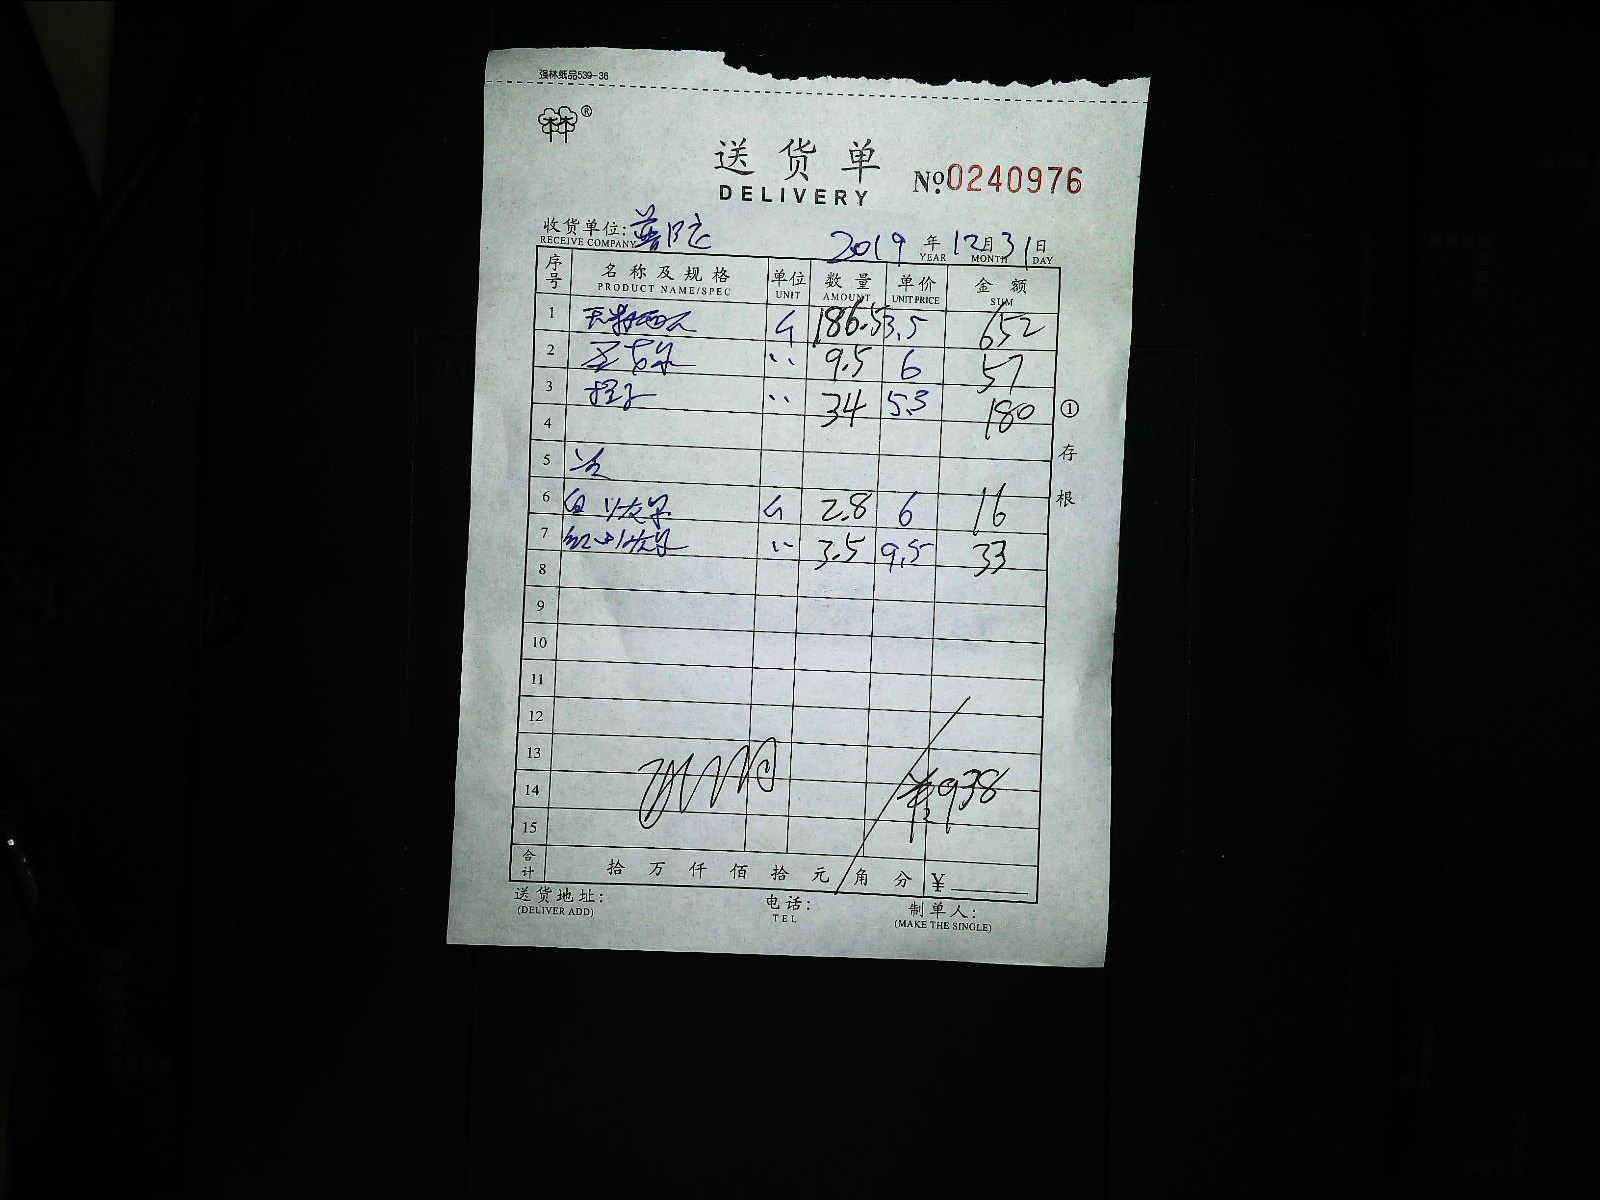 强林纸品539-36
林林®
送货单
DELIVERY
No.0240976
收货单位:普陀
RECEIVE COMPANY
2019年12月31日
YEAR MONTH DAY
序号 名称及规格 单位 数量 单价 金额
PRODUCT NAME/SPEC UNIT AMOUNT UNIT PRICE SUM
1 斤 186.5 3.5 652
2 〃 9.5 6 57
3 橙子 〃 34 5.3 180
4
5
6 斤 2.8 6 16
7 〃 3.5 9.5 33
8
9
10
11
12
13
14 ¥938
15
合计 拾万仟佰拾元角分 ¥
送货地址: 电话: 制单人:
(DELIVER ADD) TEL (MAKE THE SINGLE)
①存根